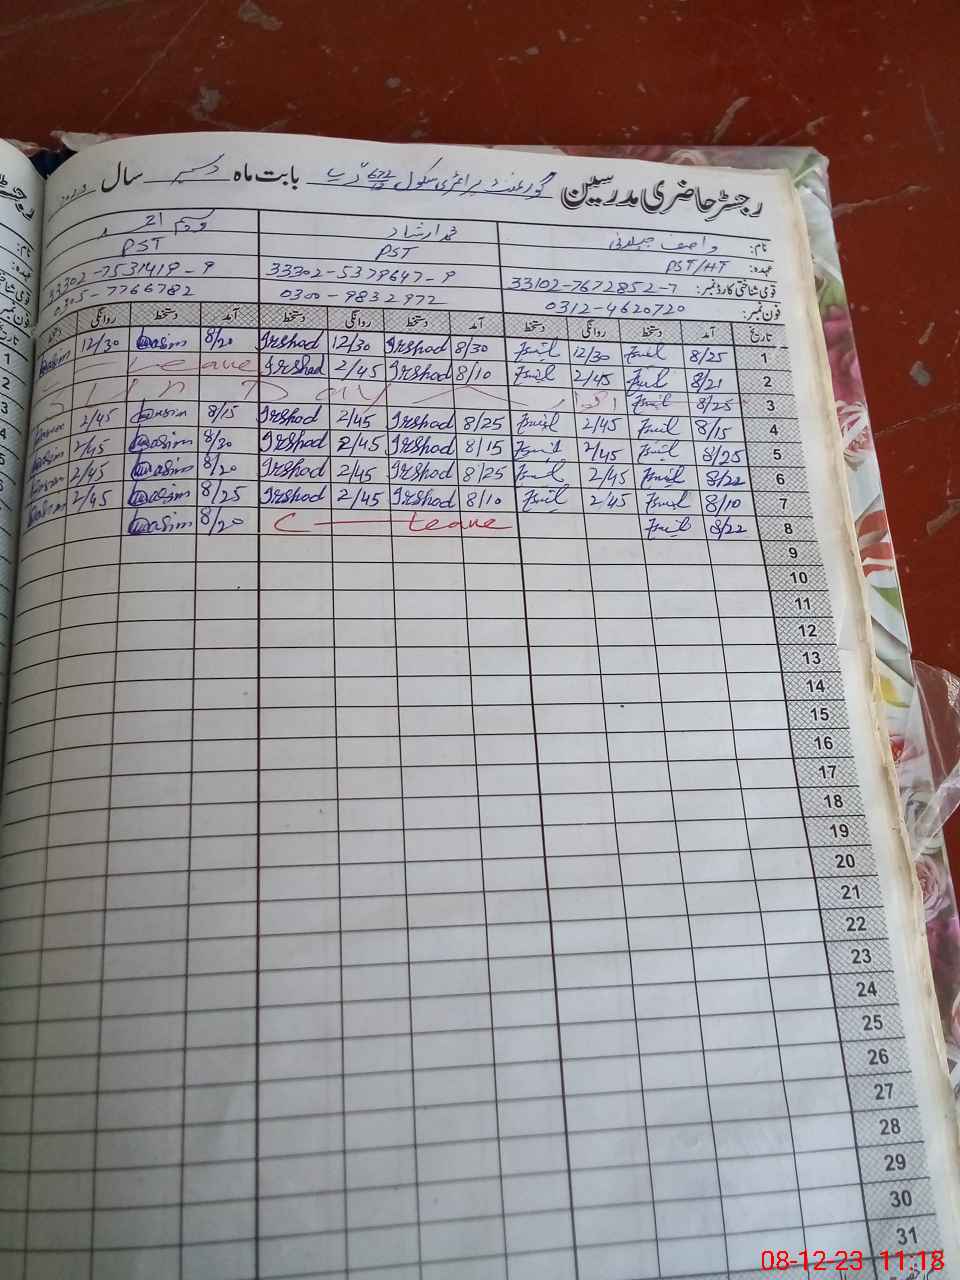 رجسٹر حاضری مدرسین گورنمنٹ پرائمری سکول 672/13 گ ب بابت ماہ دسمبر سال
نام: واصف جیلانی محمد ارشاد وسیم احمد
عہدہ: PST/HT PST PST
قومی شناختی کارڈ نمبر: 33102-7672852-7 33302-5379647-9 33302-7531419-9
فون نمبر: 0312-4620720 0300-9832972 305-7766782
تاریخ آمد دستخط روانگی دستخط آمد دستخط روانگی دستخط آمد دستخط روانگی
1 8/25 12/30 8/30 Irshad 12/30 Irshad 8/20 Wasim 12/30 Wasim
2 8/21 2/45 8/10 Irshad 2/45 Irshad Leave
3 8/25 Sunday
4 8/15 2/45 8/25 Irshad 2/45 Irshad 8/15 Wasim 2/45 Wasim
5 8/25 2/45 8/15 Irshad 2/45 Irshad 8/30 Wasim 2/45 Wasim
6 8/22 2/45 8/25 Irshad 2/45 Irshad 8/20 Wasim 2/45 Wasim
7 8/10 2/45 8/10 Irshad 2/45 Irshad 8/25 Wasim 2/45 Wasim
8 8/22 Leave 8/20 Wasim
9
10
11
12
13
14
15
16
17
18
19
20
21
22
23
24
25
26
27
28
29
30
31
08-12-23 11:18